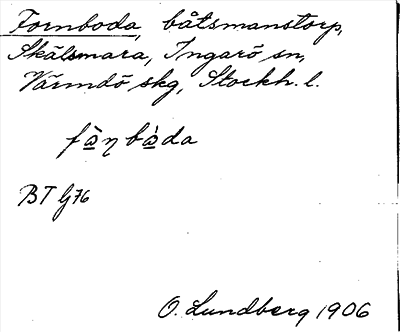 Fornboda, båtsmanstorp,
Skälsmara, Ingarö sn,
Värmdö skg, Stockh. l.
fàŋbàda
BT G76
O. Lundberg 1906